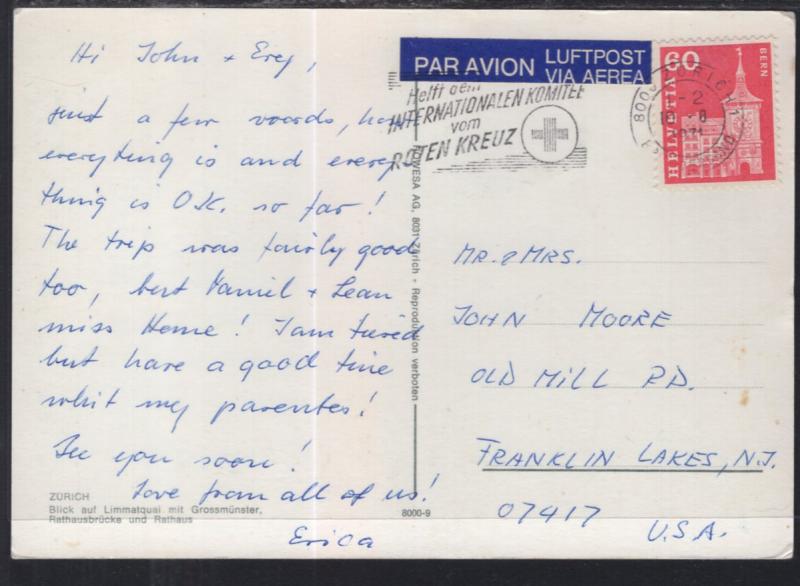 Hi John + Erey,
just a few woords, how
everything is and every
thing is O.K. so far!
The trip was fairly good
too, but Daniel + Sean
miss Heme! I am tiered
but have a good time
whit my parentes!
See you soon!
Love from all of us!
Erica
ZÜRICH
Blick auf Limmatquai mit Grossmünster,
Rathausbrücke und Rathaus
8000-9
ROWESA AG, 8031 Zürich - Reproduction verboten
PAR AVION
LUFTPOST
VIA AEREA
Helft dem
INTERNATIONALEN KOMITEE
vom
ROTEN KREUZ
8000 ZÜRICH 1
60
HELVETIA
BERN
MR. & MRS.
JOHN MOORE
OLD MILL RD.
FRANKLIN LAKES, N.J.
07417
U.S.A.